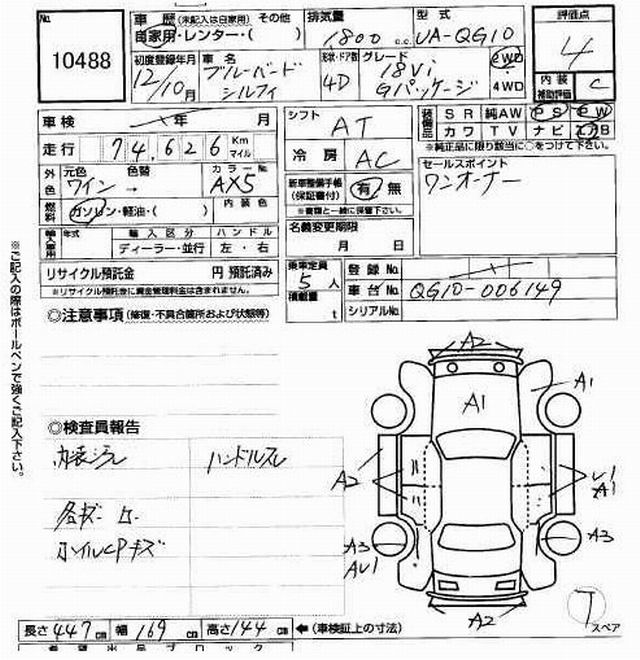 No.
10488
車歴 (未記入は自家用) その他
自家用・レンター・( )
排気量
1,800 c.c.
型式
UA-QG10
評価点
4
内装
補助評価
C
初度登録年月
12/10月
車名
ブルーバード
シルフィ
形状・ドア数
4D
グレード
18Vi
Gパッケージ
2WD
4WD
車検 年 月
走行 74,626 Km
マイル
シフト
AT
冷房
AC
装備品
SR 純AW PS PW
カワ TV ナビ エアB
※純正品に限り該当に○をつけて下さい。
外色
元色 色替 カラーNo.
ワイン → AX5
燃料
ガソリン・軽油・( )
内装色
新車整備手帳
(保証書付)
有 無
※書類と一緒に保管下さい。
セールスポイント
ワンオーナー
輸入車用
年式 輸入区分 ハンドル
ディーラー・並行 左・右
名義変更期限
月 日
リサイクル預託金 円 預託済み
※リサイクル預託金に資金管理料金は含まれません。
乗車定員
5人
積載量
t
登録No.
車台No. QG10-006149
シリアルNo.
※ご記入の際はボールペンで強くご記入下さい。
◎注意事項 (修復・不具合箇所および状態等)
◎検査員報告
内装ヨゴレ
ハンドルスレ
各キズ
ホイルCPキズ
A2
A1
A1
A2
A1
A3
A3
A2
T
スペア
長さ 447cm 幅 169cm 高さ 144cm ←(車検証上の寸法)